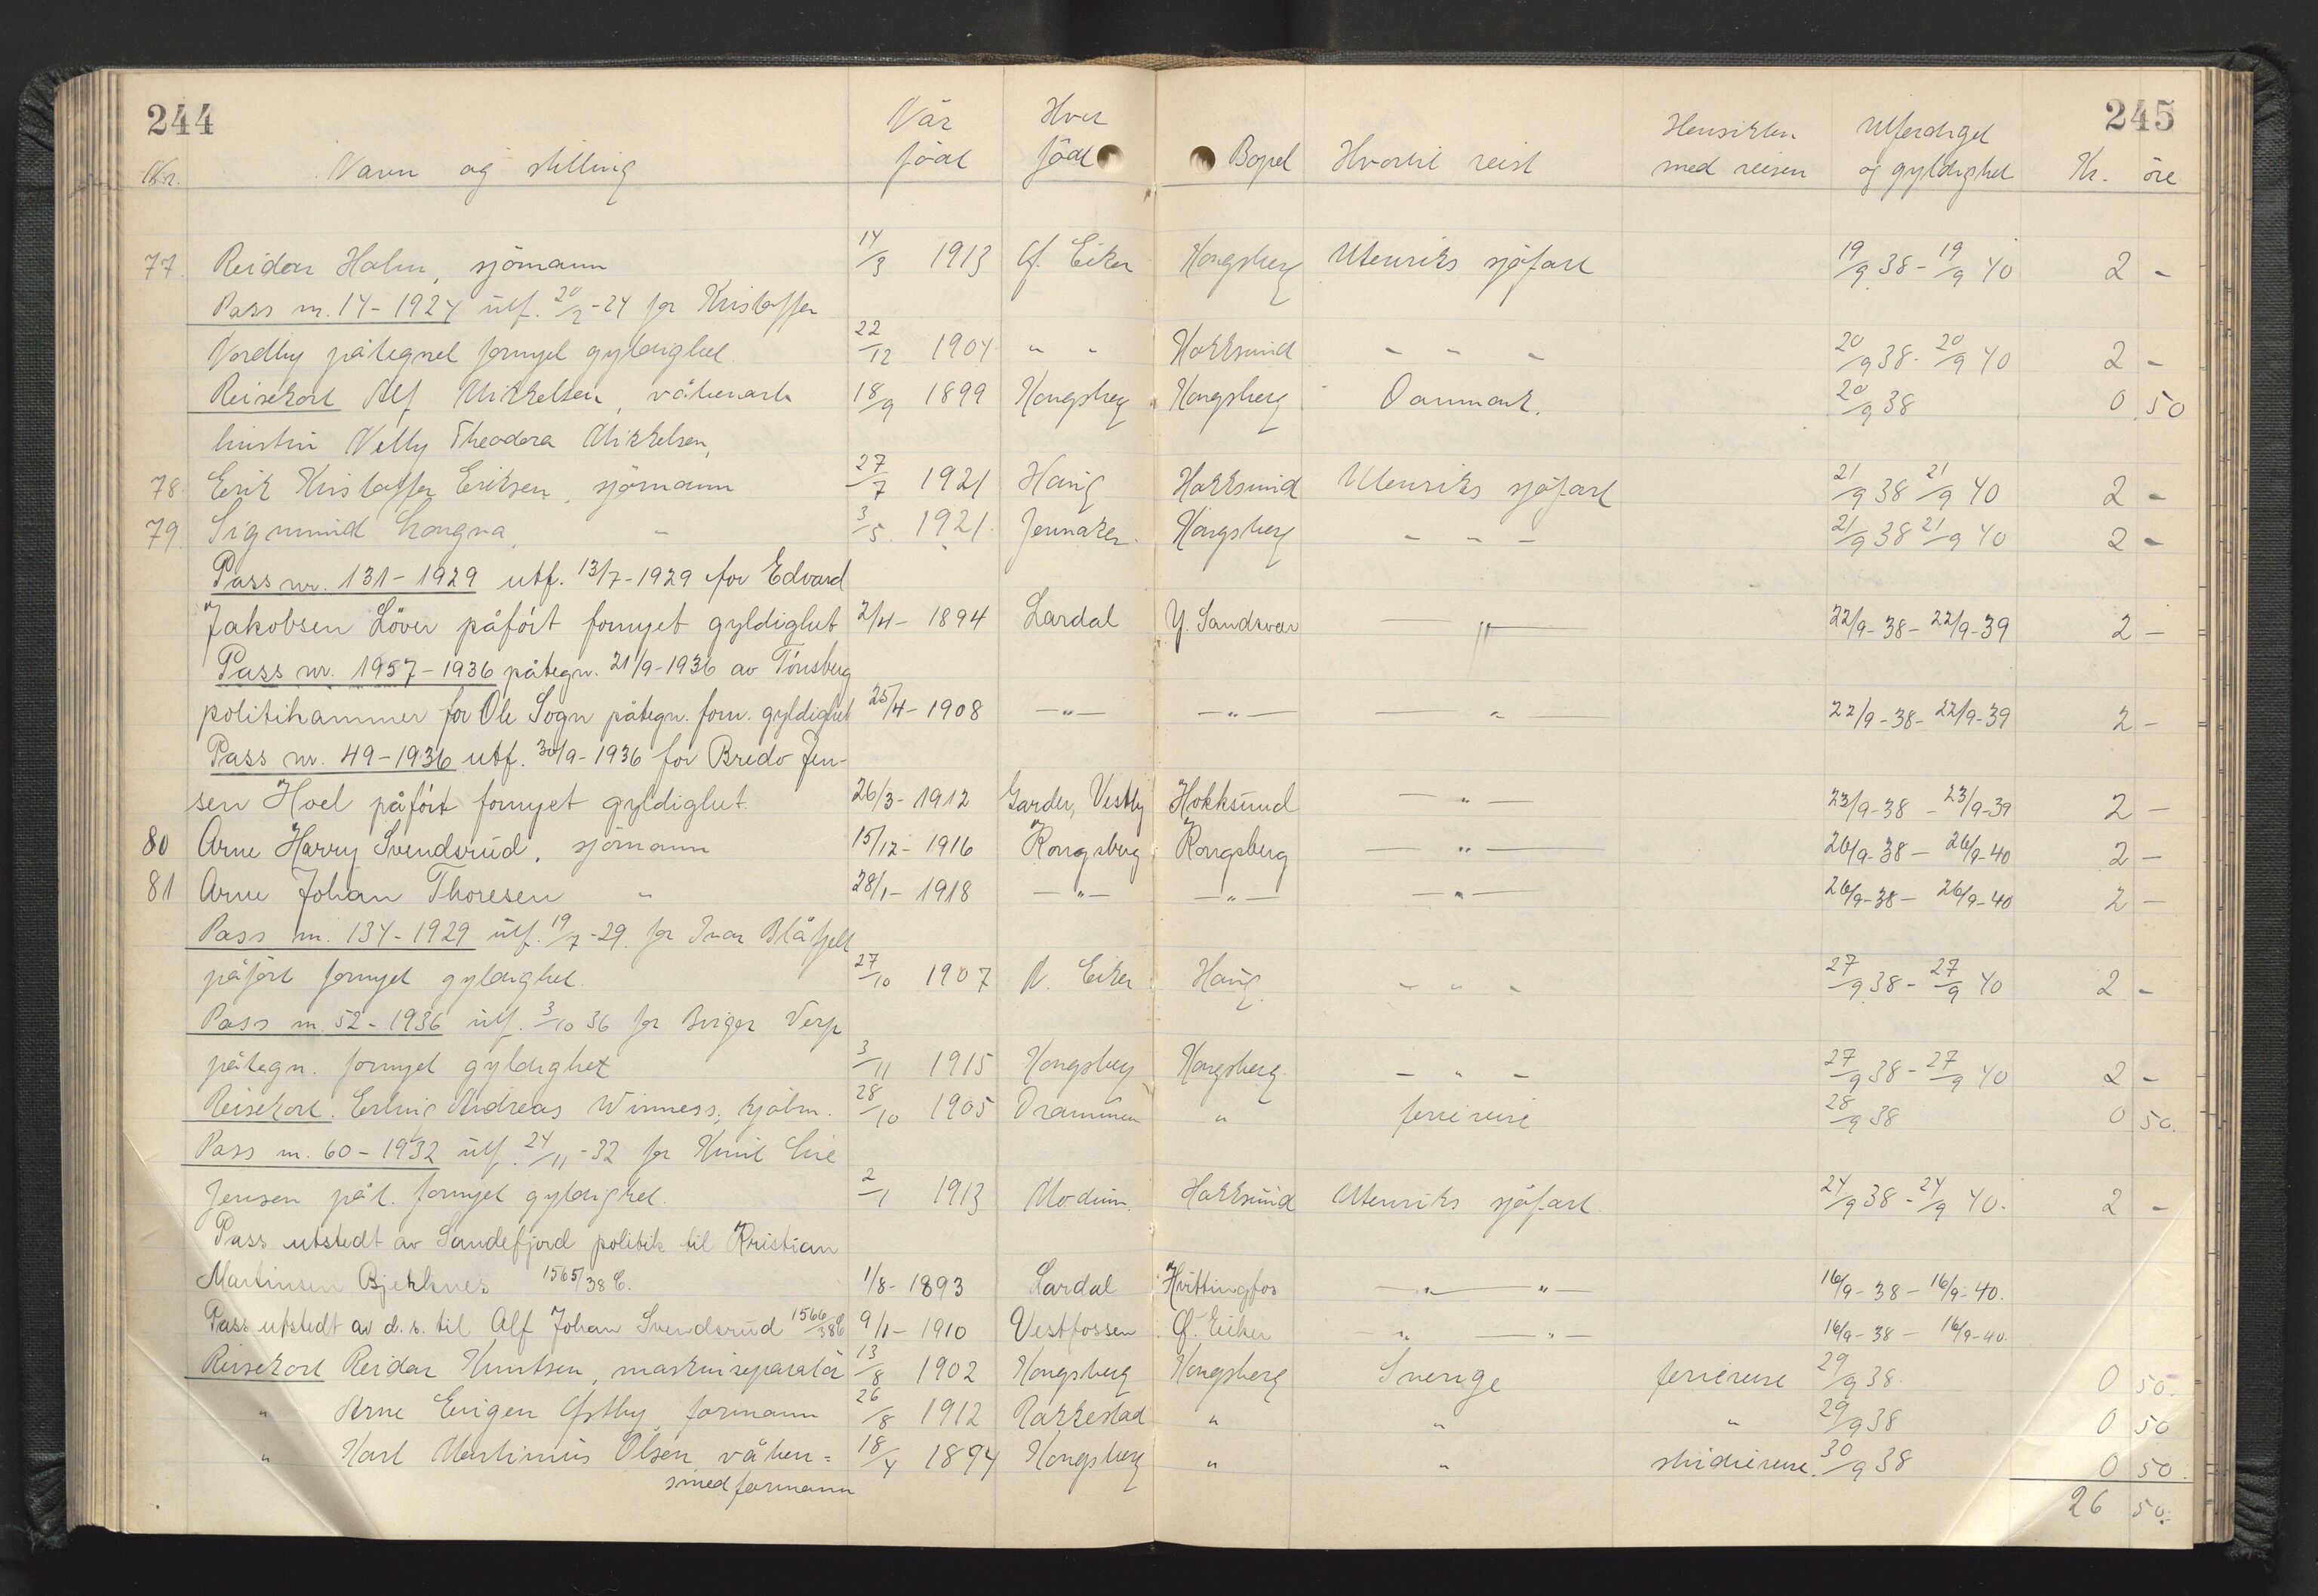 244 245
Når Hvor Hensikten Utferdiget
Nr. Navn og stilling född född Bopel Hvortil reist med reisen og gyldighet Kr. öre
77. Reidar Holm, sjömann 14/3 1913 Ö. Eiker Kongsberg Utenriks sjöfart 19/9 38 - 19/9 40 2 -
Pass nr. 14 - 1924 utf. 20/2 - 24 for Kristoffer
Nordby påtegnet fornyet gyldighet. 22/12 1904. " " Hokksund - - - 20/9 38 - 20/9 40 2 -
Reisekort Alf Mikkelsen, våbenarb 18/9 1899 Kongsberg Kongsberg Danmark. 20/9 38 0 50
hustru Nelly Theodora Mikkelsen,
78. Erik Kristoffer Eriksen, sjömann 27/7 1921 Haug Hokksund Utenriks sjöfart 21/9 38 21/9 40 2 -
79. Sigmund Longva, " 3/5. 1921. Jevnaker. Kongsberg - - - 21/9 38 21/9 40 2 -
Pass nr. 131 - 1929 utf. 13/7 - 1929 for Edvard
Jakobsen Löver påført fornyet gyldighet 2/4 - 1894 Lardal Y. Sandsvær — " — 22/9 - 38 - 22/9 - 39 2 -
Pass nr. 1957 - 1936 påtegn. 21/9 - 1936 av Tönsberg
politikammer for Ole Sogn påtegn. forn. gyldighet 25/4 - 1908 — " — — " — — " — 22/9 - 38 - 22/9 - 39 2 -
Pass nr. 49 - 1936 utf. 30/9 - 1936 for Bredo Jen-
sen Hoel påført fornyet gyldighet. 26/3 - 1912 Garder, Vestby Hokksund — " — 23/9 - 38 - 23/9 - 39 2 -
80 Arne Harry Svendsrud, sjömann 15/12 - 1916 Kongsberg Kongsberg — " — 26/9 - 38 - 26/9 - 40 2 -
81 Arne Johan Thoresen " 28/1 - 1918 — " — — " — — " — 26/9 - 38 - 26/9 - 40 2 -
Pass nr. 134 - 1929 utf. 19/7 - 29. for Ivar Blåfjell
påfört fornyet gyldighet. 27/10 1907 N. Eiker Haug - " - 27/9 38 - 27/9 40 2 -
Pass nr. 52 - 1936 utf. 3/10 36 for Birger Verp
påtegn. fornyet gyldighet 3/11 1915 Kongsberg Kongsberg - " - 27/9 38 - 27/9 40 2 -
Reisekort. Erling Andreas Winness, kjöbm. 28/10 1905 Drammen " feriereise 28/9 38 0 50.
Pass nr. 60 - 1932 utf. 24/11 - 32 for Knut Lie
Jensen påt. fornyet gyldighet. 2/1 1913 Modum. Hokksund Utenriks sjöfart. 24/9 38 - 24/9 40. 2 -
Pass utstedt av Sandefjord politik til Kristian
Martinsen Bjerknes 1565/38 C. 1/8 - 1893 Lardal Hvittingfos — " — " — 16/9 - 38 - 16/9 - 40.
Pass utstedt av d. s. til Alf Johan Svendsrud 1566/38 C 9/1 - 1910 Vestfossen Ö. Eiker — " — " — 16/9 - 38 - 16/9 - 40.
Reisekort Reidar Knutsen, maskinreparatör 13/8 1902 Kongsberg Kongsberg Sverige feriereise 29/9 38. 0 50.
" Arne Eugen Östby, formann 26/8 1912 Rakkestad " " " 29/9 38 0 50
" Karl Martinius Olsen våben= 18/4 1894 Kongsberg " " studiereise. 30/9 38 0 50.
smedformann
26 50.